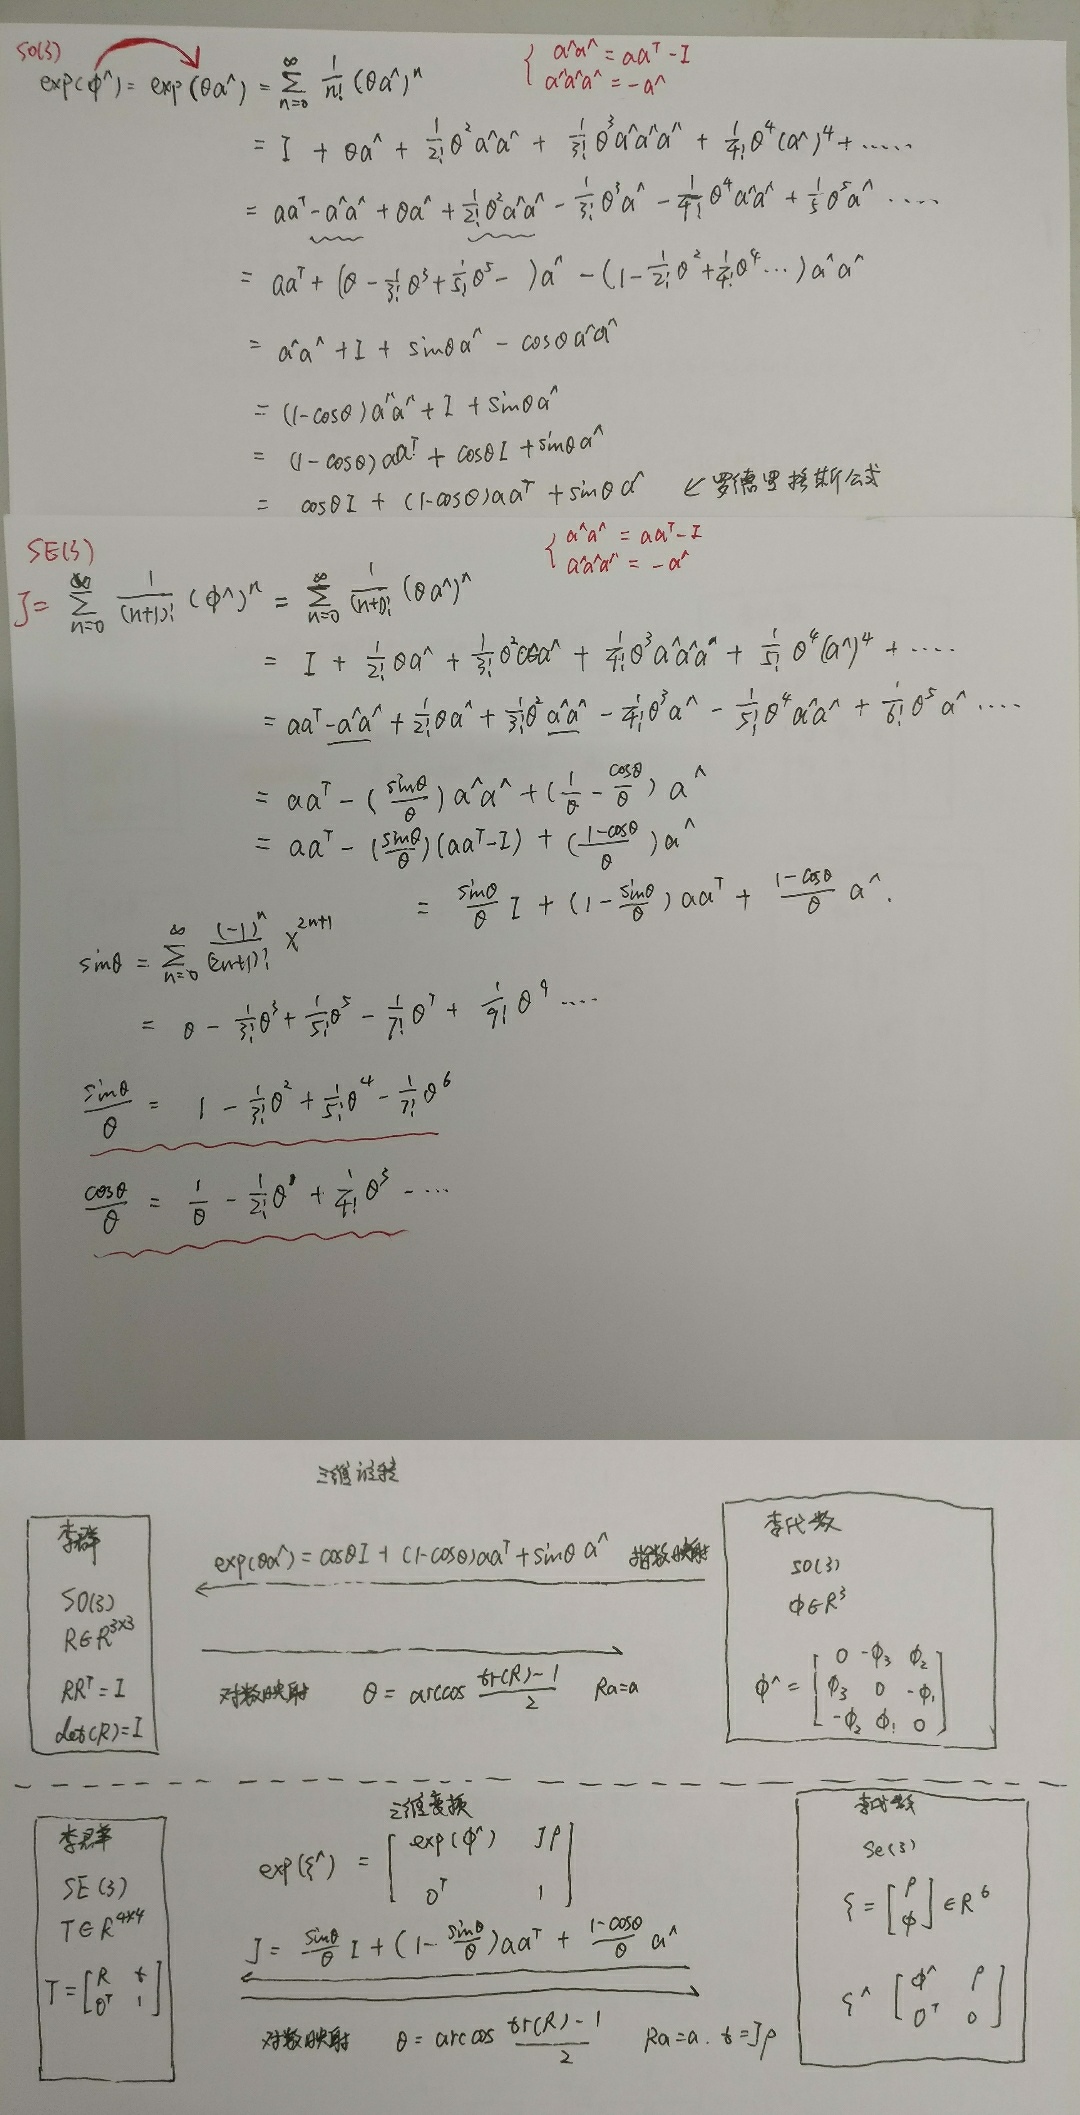 SO(3)
exp(ϕ^) = exp(θa^) = ∑_{n=0}^{∞} 1/n! (θa^)^n
{ a^a^ = aaᵀ - I
a^a^a^ = -a^
= I + θa^ + 1/2! θ² a^a^ + 1/3! θ³ a^a^a^ + 1/4! θ⁴ (a^)⁴ + ......
= aaᵀ - a^a^ + θa^ + 1/2! θ² a^a^ - 1/3! θ³ a^ - 1/4! θ⁴ a^a^ + 1/5 θ⁵ a^ ....
= aaᵀ + (θ - 1/3! θ³ + 1/5! θ⁵ - ) a^ - (1 - 1/2! θ² + 1/4! θ⁴ ...) a^a^
= a^a^ + I + sinθ a^ - cosθ a^a^
= (1-cosθ) a^a^ + I + sinθ a^
= (1-cosθ) aaᵀ + cosθ I + sinθ a^
= cosθ I + (1-cosθ) aaᵀ + sinθ a^ ← 罗德里格斯公式
SE(3)
{ a^a^ = aaᵀ - I
a^a^a^ = -a^
J = ∑_{n=0}^{∞} 1/(n+1)! (ϕ^)^n = ∑_{n=0}^{∞} 1/(n+1)! (θa^)^n
= I + 1/2! θa^ + 1/3! θ² a^a^ + 1/4! θ³ a^a^a^ + 1/5! θ⁴ (a^)⁴ + ....
= aaᵀ - a^a^ + 1/2! θa^ + 1/3! θ² a^a^ - 1/4! θ³ a^ - 1/5! θ⁴ a^a^ + 1/6! θ⁵ a^ ....
= aaᵀ - (sinθ/θ) a^a^ + (1/θ - cosθ/θ) a^
= aaᵀ - (sinθ/θ)(aaᵀ - I) + (1-cosθ/θ) a^
= sinθ/θ I + (1 - sinθ/θ) aaᵀ + 1-cosθ/θ a^.
sinθ = ∑_{n=0}^{∞} (-1)^n/(2n+1)! x^{2n+1}
= θ - 1/3! θ³ + 1/5! θ⁵ - 1/7! θ⁷ + 1/9! θ⁹ ....
sinθ/θ = 1 - 1/3! θ² + 1/5! θ⁴ - 1/7! θ⁶
cosθ/θ = 1/θ - 1/2! θ¹ + 1/4! θ³ - ....
三维旋转
李群
SO(3)
R∈R^{3×3}
RRᵀ = I
det(R) = I
exp(θa^) = cosθ I + (1-cosθ) aaᵀ + sinθ a^ 指数映射
对数映射 θ = arccos tr(R)-1/2 Ra=a
李代数
so(3)
ϕ∈R³
ϕ^ = [0 -ϕ₃ ϕ₂
ϕ₃ 0 -ϕ₁
-ϕ₂ ϕ₁ 0]
三维变换
李群
SE(3)
T∈R^{4×4}
T = [R t
0ᵀ 1]
exp(ξ^) = [exp(ϕ^) Jρ
0ᵀ 1]
J = sinθ/θ I + (1 - sinθ/θ) aaᵀ + 1-cosθ/θ a^
对数映射 θ = arccos tr(R)-1/2 Ra=a. t=Jρ
李代数
se(3)
ξ = [ρ
ϕ] ∈R⁶
ξ^ [ϕ^ ρ
0ᵀ 0]